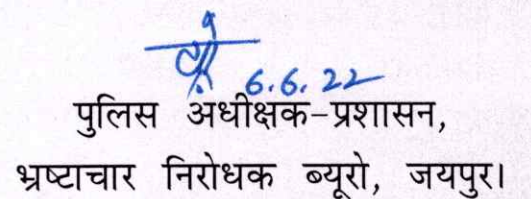 6.6.22
पुलिस अधीक्षक-प्रशासन,
भ्रष्टाचार निरोधक ब्यूरो, जयपुर।